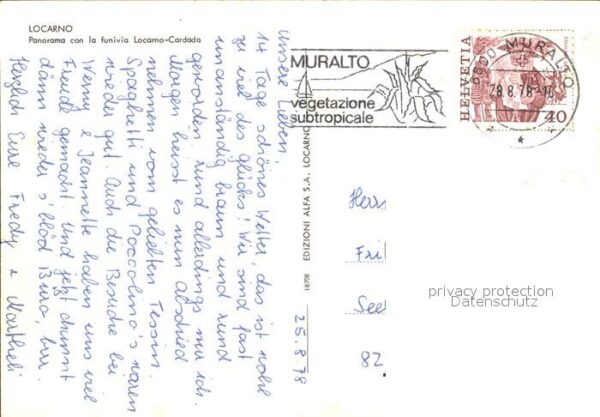 LOCARNO
Panorama con la funivia Locarno-Cardada
Unsere Lieben,
14 Tage schönes Wetter, das ist wohl
zu viel des Glücks! Wir sind fast
unanständig braun und rund
geworden, rund allerdings nur ich.
Morgen heisst es nun Abschied
nehmen vom geliebten Tessin.
Spaghetti und Poccolino's waren
wieder gut. Auch die Besuche bei
Werny & Jeannette haben uns viel
Freude gemacht. und jetzt chunnt
dänn wieder s'blöd Büro, brr.
Herzlich Eure Fredy &
25.8.78
18708 EDIZIONI ALFA S.A., LOCARNO
MURALTO
vegetazione
subtropicale
6600 MURALTO
28.8.78-16
HELVETIA
40
Herr
Fri
See
82
privacy protection
Datenschutz